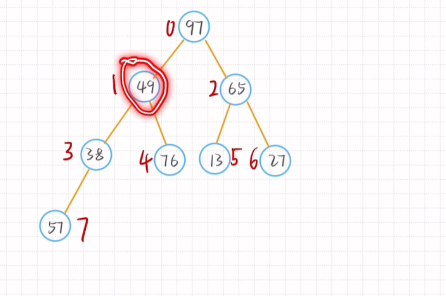 0 97
1 49 2 65
3 38 4 76 13 5 6 27
57 7